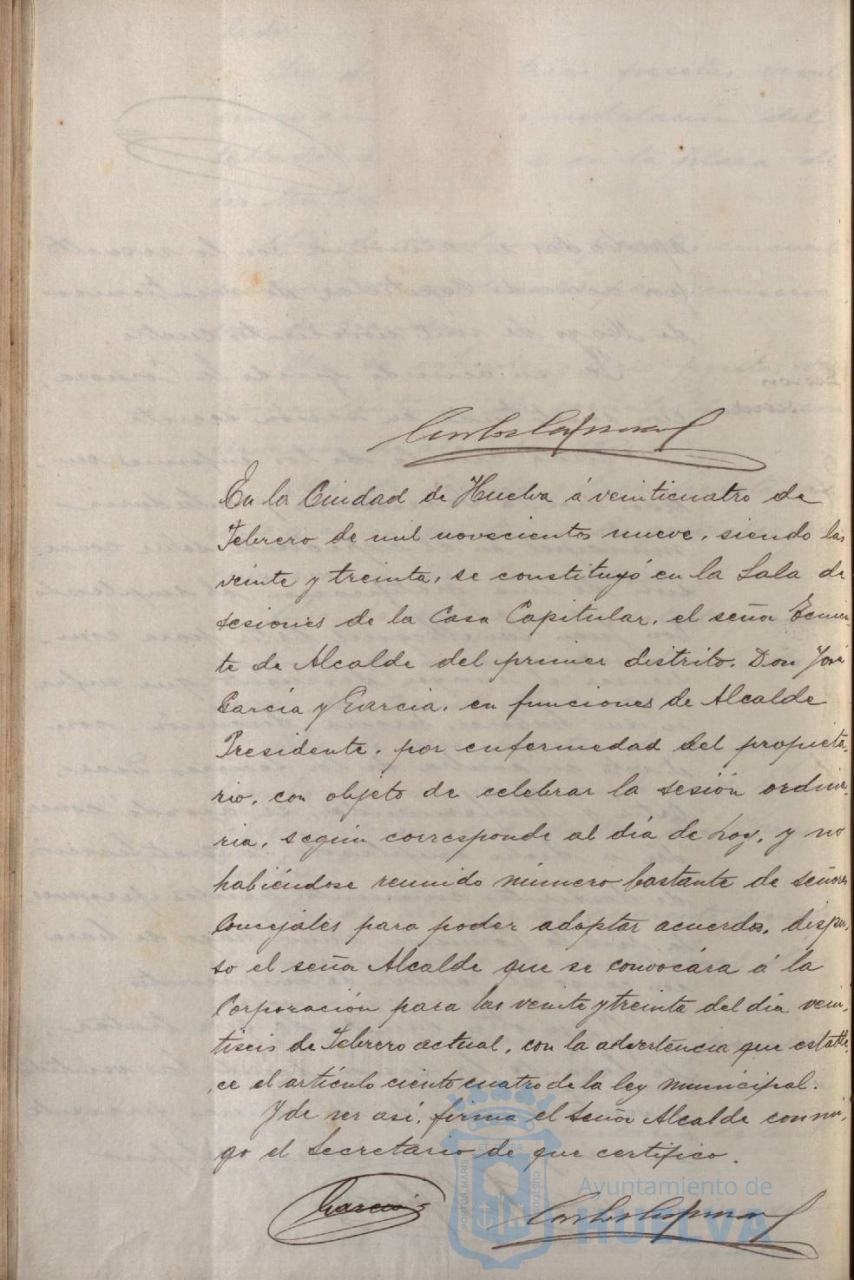 En la Ciudad de Huelva á veinticuatro de
Febrero de mil novecientos nueve, siendo las
veinte y treinta, se constituyó en la Sala de
sesiones de la Casa Capitular, el señor Tenien-
te de Alcalde del primer distrito, Don José
García y Garcia, en funciones de Alcalde
Presidente, por enfermedad del propieta-
rio, con objeto de celebrar la sesión ordina-
ria, según corresponde al día de hoy, y no
habiéndose reunido número bastante de señores
Concejales para poder adoptar acuerdos, dispu-
so el señor Alcalde que se convocára á la
Corporación para las veinte y treinta del día vein-
tiseis de Febrero actual, con la advertencia que estable-
ce el artículo ciento cuatro de la ley municipal.
Y de ser así, firma el Señor Alcalde conmi-
go el Secretario de que certifico.
García
Ayuntamiento de
HUELVA